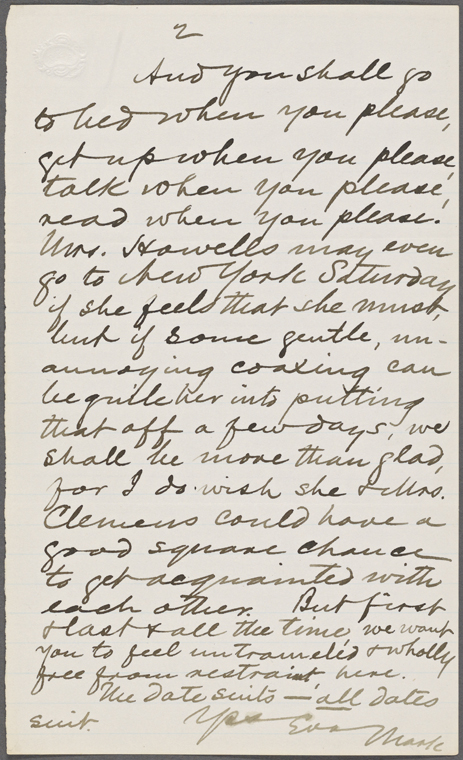 2
And you shall go
to bed when you please,
get up when you please,
talk when you please,
read when you please.
Mrs. Howells may even
go to New York Saturday
if she feels that she must,
but if some gentle, un-
annoying coaxing can
beguile her into putting
that off a few days, we
shall be more than glad,
for I do wish she & Mrs.
Clemens could have a
good square chance
to get acquainted with
each other. But first
& last & all the time, we want
you to feel untrameled & wholly
free from restraint, here.
The date suits — all dates
suit.
Yrs Ever
Mark